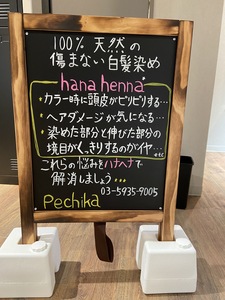 100% 天然の
傷まない白髪染め
hana henna
・カラー時に頭皮がピリピリする…
・ヘアダメージが気になる…
・染めた部分と伸びた部分の
境目がくっきりするのがイヤ…
これらの悩みをハナヘナで
解消しましょう…
03-5935-9005
Pechika